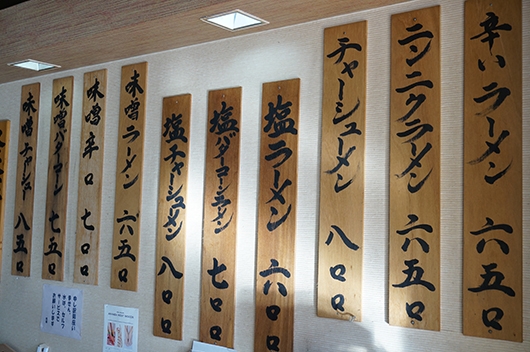 辛いラーメン 六五〇
ニンニクラーメン 六五〇
チャーシューメン 八〇〇
塩ラーメン 六〇〇
塩バターコーンラーメン 七〇〇
塩チャシューメン 八〇〇
味噌ラーメン 六五〇
味噌辛口 七〇〇
味噌バターコーン 七五〇
味噌チャシュー 八五〇